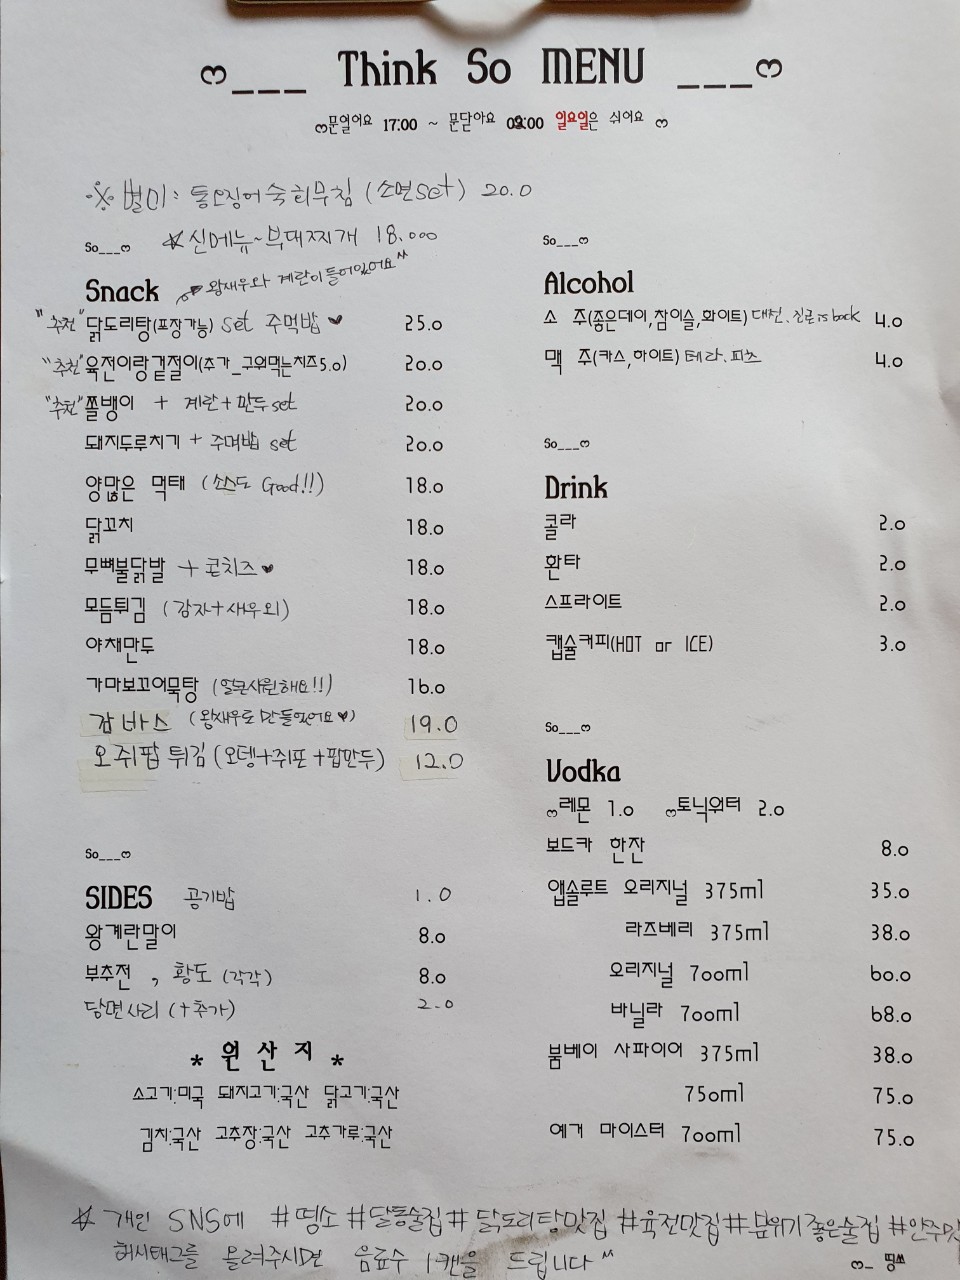 ෆ___ Think So MENU ___ෆ
ෆ문열어요 17:00 ~ 문닫아요 02:00 일요일은 쉬어요 ෆ
※ 별미: 통오징어숙회무침 (소면set) 20.0
So___ෆ ☆신메뉴~부대찌개 18.000
Snack 왕새우와 계란이 들어있어요^^
"추천" 닭도리탕(포장가능) set 주먹밥 ♥ 25.0
"추천" 육전이랑겉절이(추가_구워먹는치즈5.0) 20.0
"추천" 쫄뱅이 + 계란+만두set 20.0
돼지두루치기 + 주먹밥 set 20.0
양많은 먹태 (소스도 Good!!) 18.0
닭꼬치 18.0
무뼈불닭발 + 콘치즈♥ 18.0
모듬튀김 (감자+새우 외) 18.0
야채만두 18.0
가마보꼬어묵탕 (얼큰시원해요!!) 16.0
감바스 (왕새우로 만들었어요♥) 19.0
오쥐팝 튀김 (오뎅+쥐포+팝만두) 12.0
So___ෆ
SIDES 공기밥 1.0
왕계란말이 8.0
부추전 , 황도 (각각) 8.0
당면사리 (+추가) 2.0
* 원 산 지 *
소고기:미국 돼지고기:국산 닭고기:국산
김치:국산 고추장:국산 고추가루:국산
So___ෆ
Alcohol
소 주(좋은데이,참이슬,화이트) 대선. 진로 is back 4.0
맥 주(카스,하이트) 테라. 피츠 4.0
So___ෆ
Drink
콜라 2.0
환타 2.0
스프라이트 2.0
캡슐커피(HOT or ICE) 3.0
So___ෆ
Vodka
ෆ레몬 1.0 ෆ토닉워터 2.0
보드카 한잔 8.0
앱솔루트 오리지널 375ml 35.0
라즈베리 375ml 38.0
오리지널 700ml 60.0
바닐라 700ml 68.0
붐베이 사파이어 375ml 38.0
750ml 75.0
예거 마이스터 700ml 75.0
☆ 개인 SNS에 #띵소 #달동술집 # 닭도리탕맛집 #육전맛집#분위기좋은술집 #안주맛
해시태그를 올려주시면 음료수 1캔을 드립니다^^
ෆ_ 띵쏘